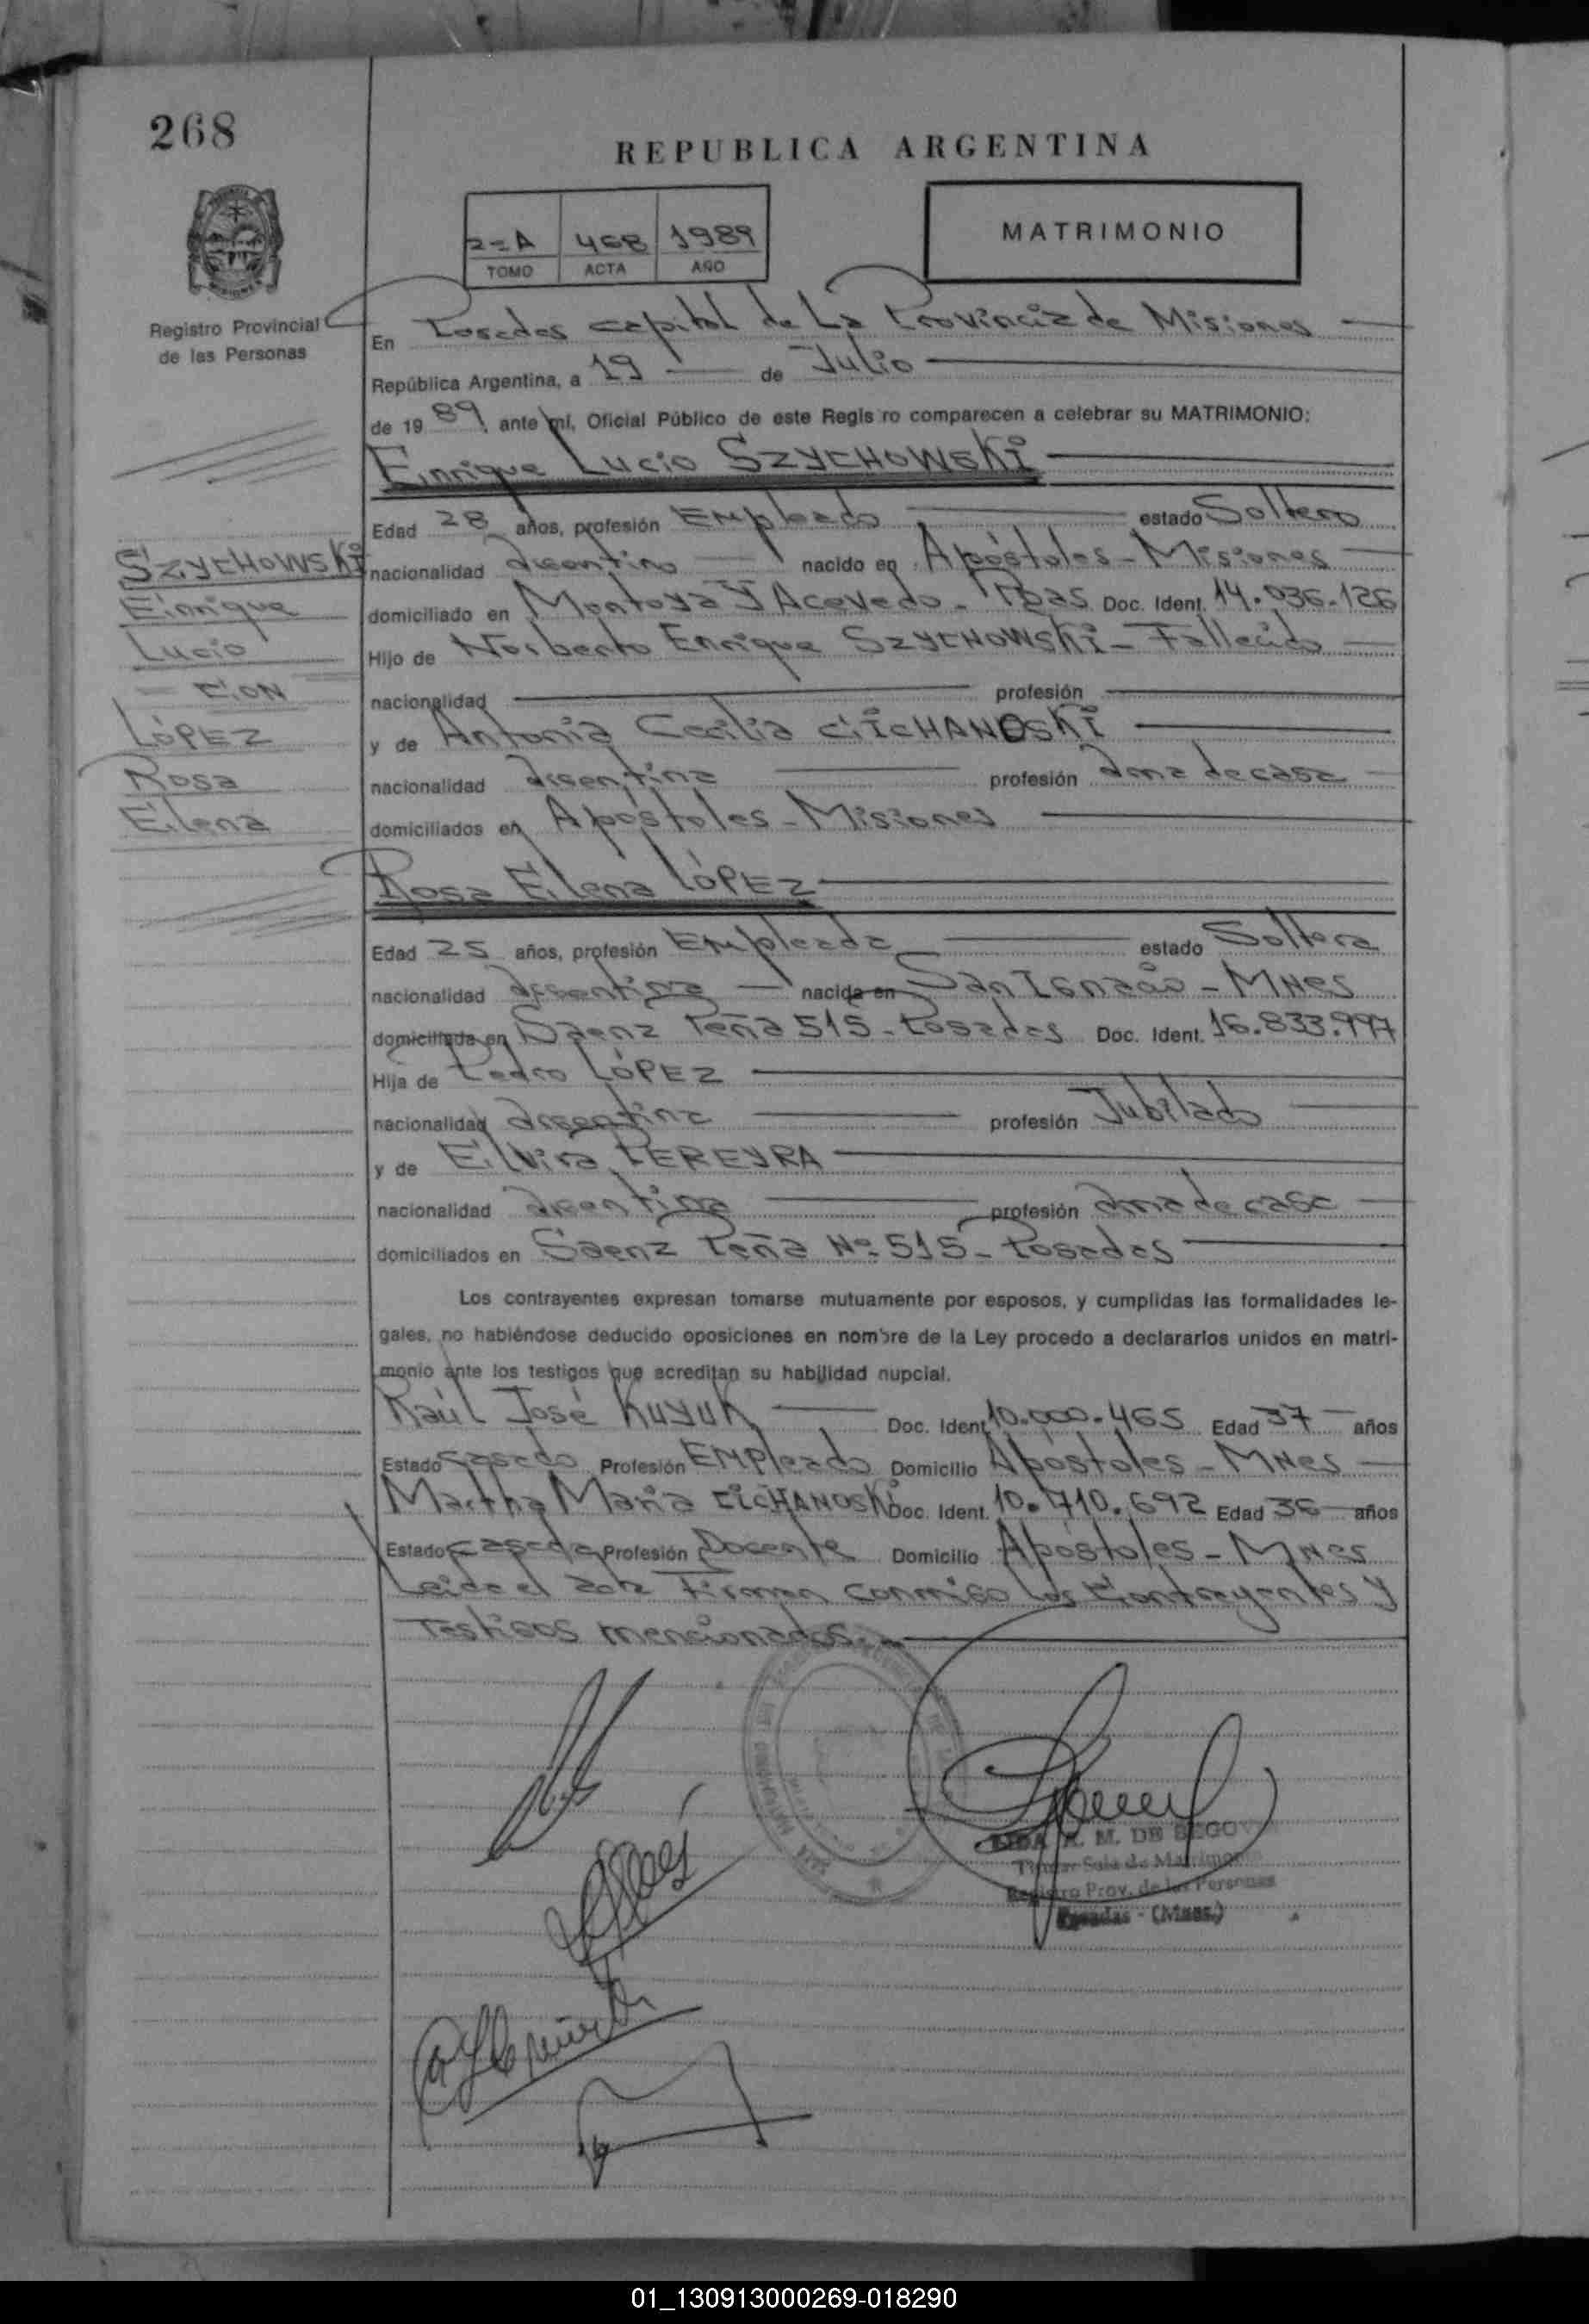 268
REPUBLICA ARGENTINA
2=A 468 1989
TOMO ACTA AÑO
MATRIMONIO
Registro Provincial
de las Personas
En Posadas capital de La Provincia de Misiones
República Argentina, a 19 de Julio
de 1989, ante mí, Oficial Público de este Regis ro comparecen a celebrar su MATRIMONIO:
Enrique Lucio SZYCHOWSKI
Edad 28 años, profesión Empleado estado Soltero
nacionalidad argentino nacido en Apóstoles - Misiones
domiciliado en Montoya y Acevedo - Pdas Doc. Ident. 14.036.126
Hijo de Norberto Enrique SZYCHOWSKI - Fallecido
nacionalidad profesión
y de Antonia Cecilia CICHANOSKI
nacionalidad argentina profesión ama de casa
domiciliados en Apóstoles - Misiones
SZYCHOWSKI
Enrique
Lucio
- CON
LÓPEZ
Rosa
Elena
Rosa Elena LÓPEZ
Edad 25 años, profesión Empleada estado Soltera
nacionalidad argentina nacida en San Ignacio - Mnes
domiciliada en Saenz Peña 515 - Posadas Doc. Ident. 16.833.997
Hija de Pedro LÓPEZ
nacionalidad argentina profesión Jubilado
y de Elvira PEREYRA
nacionalidad argentina profesión ama de casa
domiciliados en Saenz Peña Nº 515 - Posadas
Los contrayentes expresan tomarse mutuamente por esposos, y cumplidas las formalidades le-
gales, no habiéndose deducido oposiciones en nombre de la Ley procedo a declararlos unidos en matri-
monio ante los testigos que acreditan su habilidad nupcial.
Raúl José KUYUK Doc. Ident. 10.000.465 Edad 37 años
Estado casado Profesión Empleado Domicilio Apóstoles - Mnes
Martha Maria CICHANOSKI Doc. Ident. 10.710.692 Edad 36 años
Estado casada Profesión Docente Domicilio Apóstoles - Mnes
Leida el acta Firman conmigo los Contrayentes y
Testigos mencionados.
M. DE SEGOVIA
Titular Sala de Matrimonio
Registro Prov. de las Personas
Posadas - (Mnes.)
01_130913000269-018290